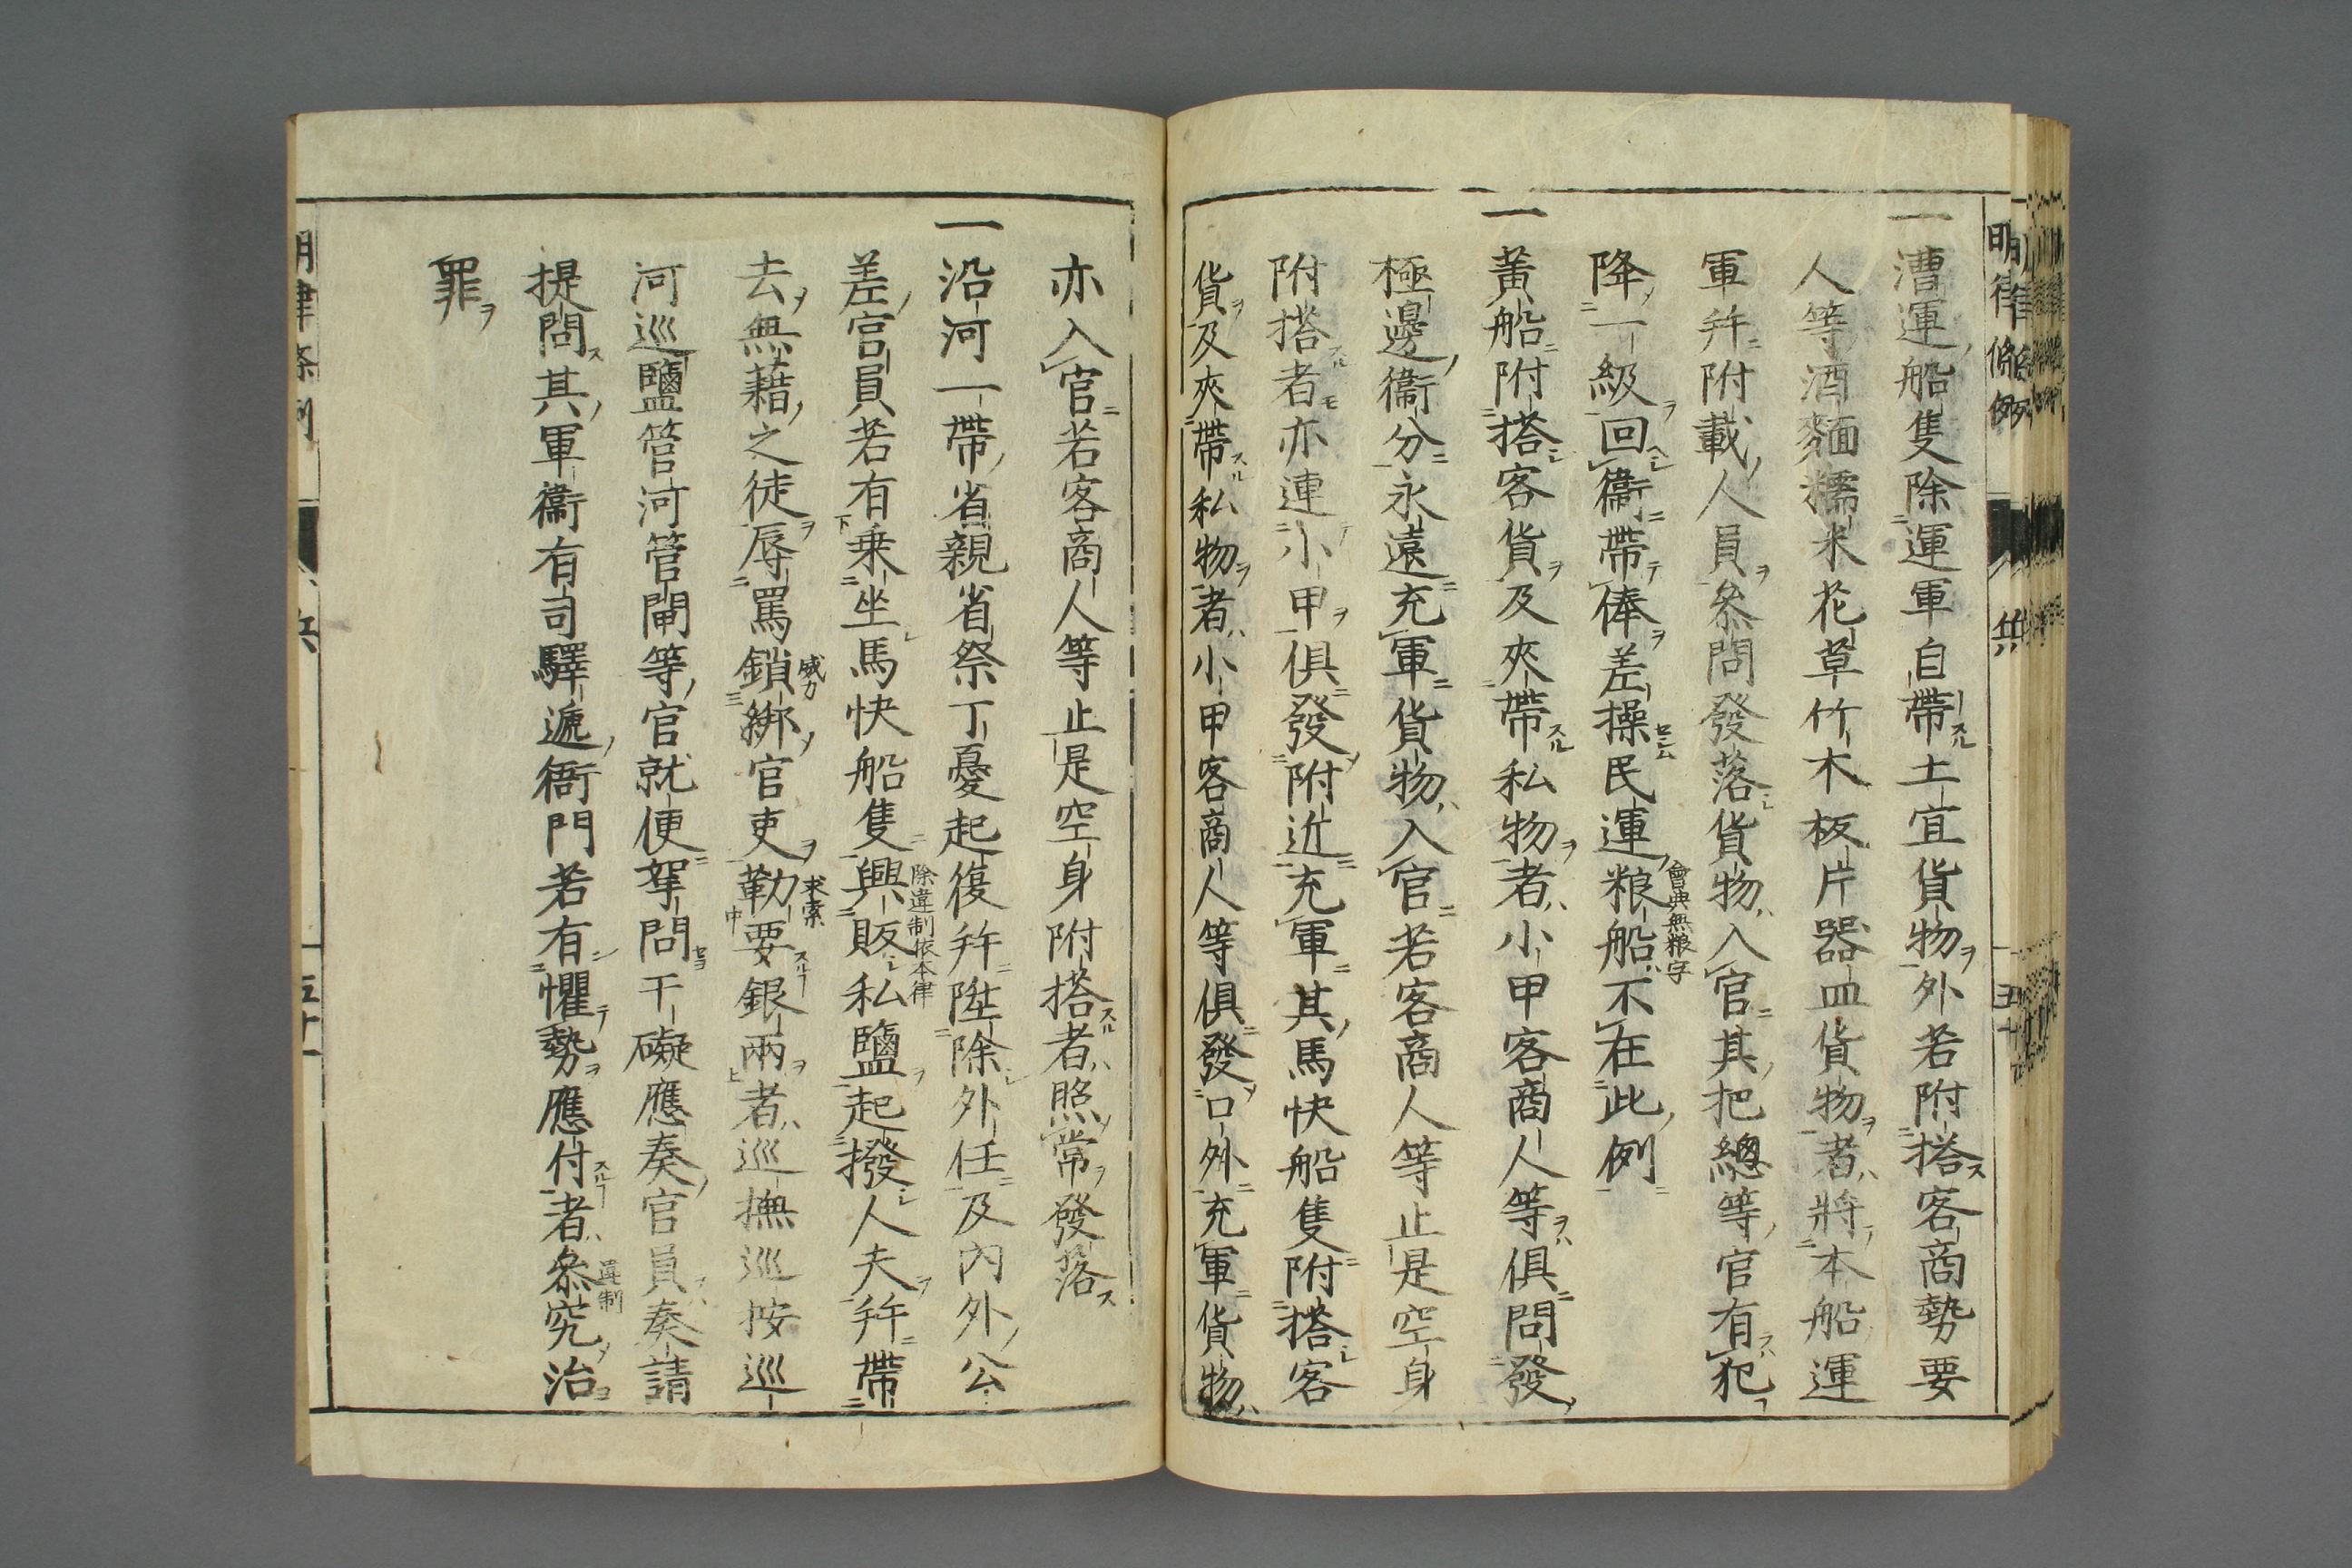 一漕運船隻除運軍自帶土宜貨物外若附搭客商勢要
人等酒麵糯米花草竹木板片器皿貨物者將本船運
軍幷附載人員叅問發落貨物入官其把總等官有犯
降一級回衞帶俸差操民運粮船不在此例
會典無粮字
一黃船附搭客貨及夾帶私物者小甲客商人等俱問發
極邊衞分永遠充軍貨物入官若客商人等止是空身
附搭者亦連小甲俱發附近充軍其馬快船隻附搭客
貨及夾帶私物者小甲客商人等俱發口外充軍貨物
亦入官若客商人等止是空身附搭者照常發落
一沿河一帶省親省祭丁憂起復幷陞除外任及內外公
差官員若有乘坐馬快船隻興販私鹽起撥人夫幷帶
除違制依本律
去無藉之徒辱罵鎖綁官吏勒要銀兩者巡撫巡按巡
威力
求索
河巡鹽管河管閘等官就便拏問干礙應奏官員奏請
提問其軍衞有司驛遞衙門若有懼勢應付者叅究治
違制
罪
明律條例
兵
五十